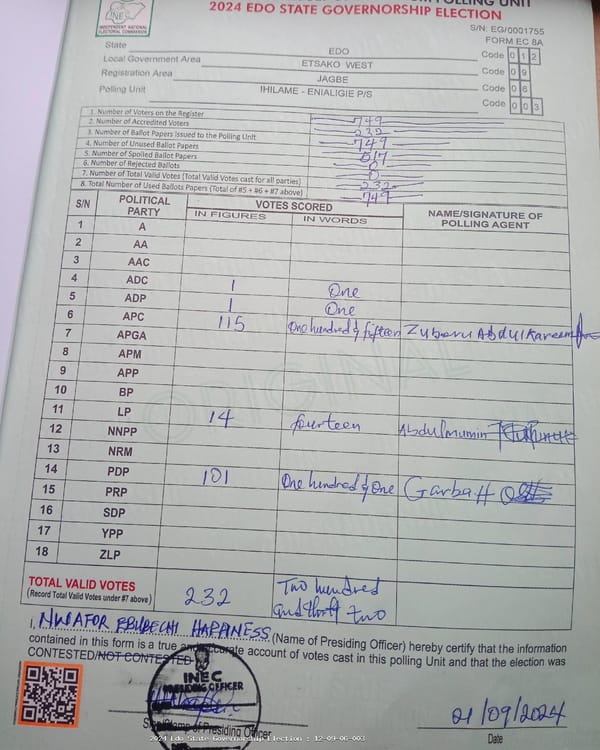 POLLING UNIT
2024 EDO STATE GOVERNORSHIP ELECTION
INEC
INDEPENDENT NATIONAL
ELECTORAL COMMISSION
S/N: EG/0001755
FORM EC 8A
State EDO Code 0 1 2
Local Government Area ETSAKO WEST Code 0 9
Registration Area JAGBE Code 0 6
Polling Unit IHILAME - ENIALIGIE P/S Code 0 0 3
1. Number of Voters on the Register 749
2. Number of Accredited Voters 232
3. Number of Ballot Papers Issued to the Polling Unit 749
4. Number of Unused Ballot Papers 517
5. Number of Spoiled Ballot Papers 0
6. Number of Rejected Ballots 0
7. Number of Total Valid Votes (Total Valid Votes cast for all parties) 232
8. Total Number of Used Ballots Papers (Total of #5 + #6 + #7 above) 749
S/N POLITICAL PARTY VOTES SCORED NAME/SIGNATURE OF POLLING AGENT
IN FIGURES IN WORDS
1 A
2 AA
3 AAC
4 ADC 1 One
5 ADP 1 One
6 APC 115 One hundred & fifteen Zuberu Abdulkareem
7 APGA
8 APM
9 APP
10 BP
11 LP 14 fourteen Abdulmumin
12 NNPP
13 NRM
14 PDP 101 One hundred & One Garba H
15 PRP
16 SDP
17 YPP
18 ZLP
ORIGINAL
TOTAL VALID VOTES 232 Two hundred
(Record Total Valid Votes under #7 above) and thirty two
I, NWAFOR HAPPINESS (Name of Presiding Officer) hereby certify that the information
contained in this form is a true and accurate account of votes cast in this polling Unit and that the election was
CONTESTED/NOT CONTESTED
INEC
PRESIDING OFFICER
Stamp of Presiding Officer
01/09/2024
Date
2024 Edo State Governorship Election : 12-09-06-003